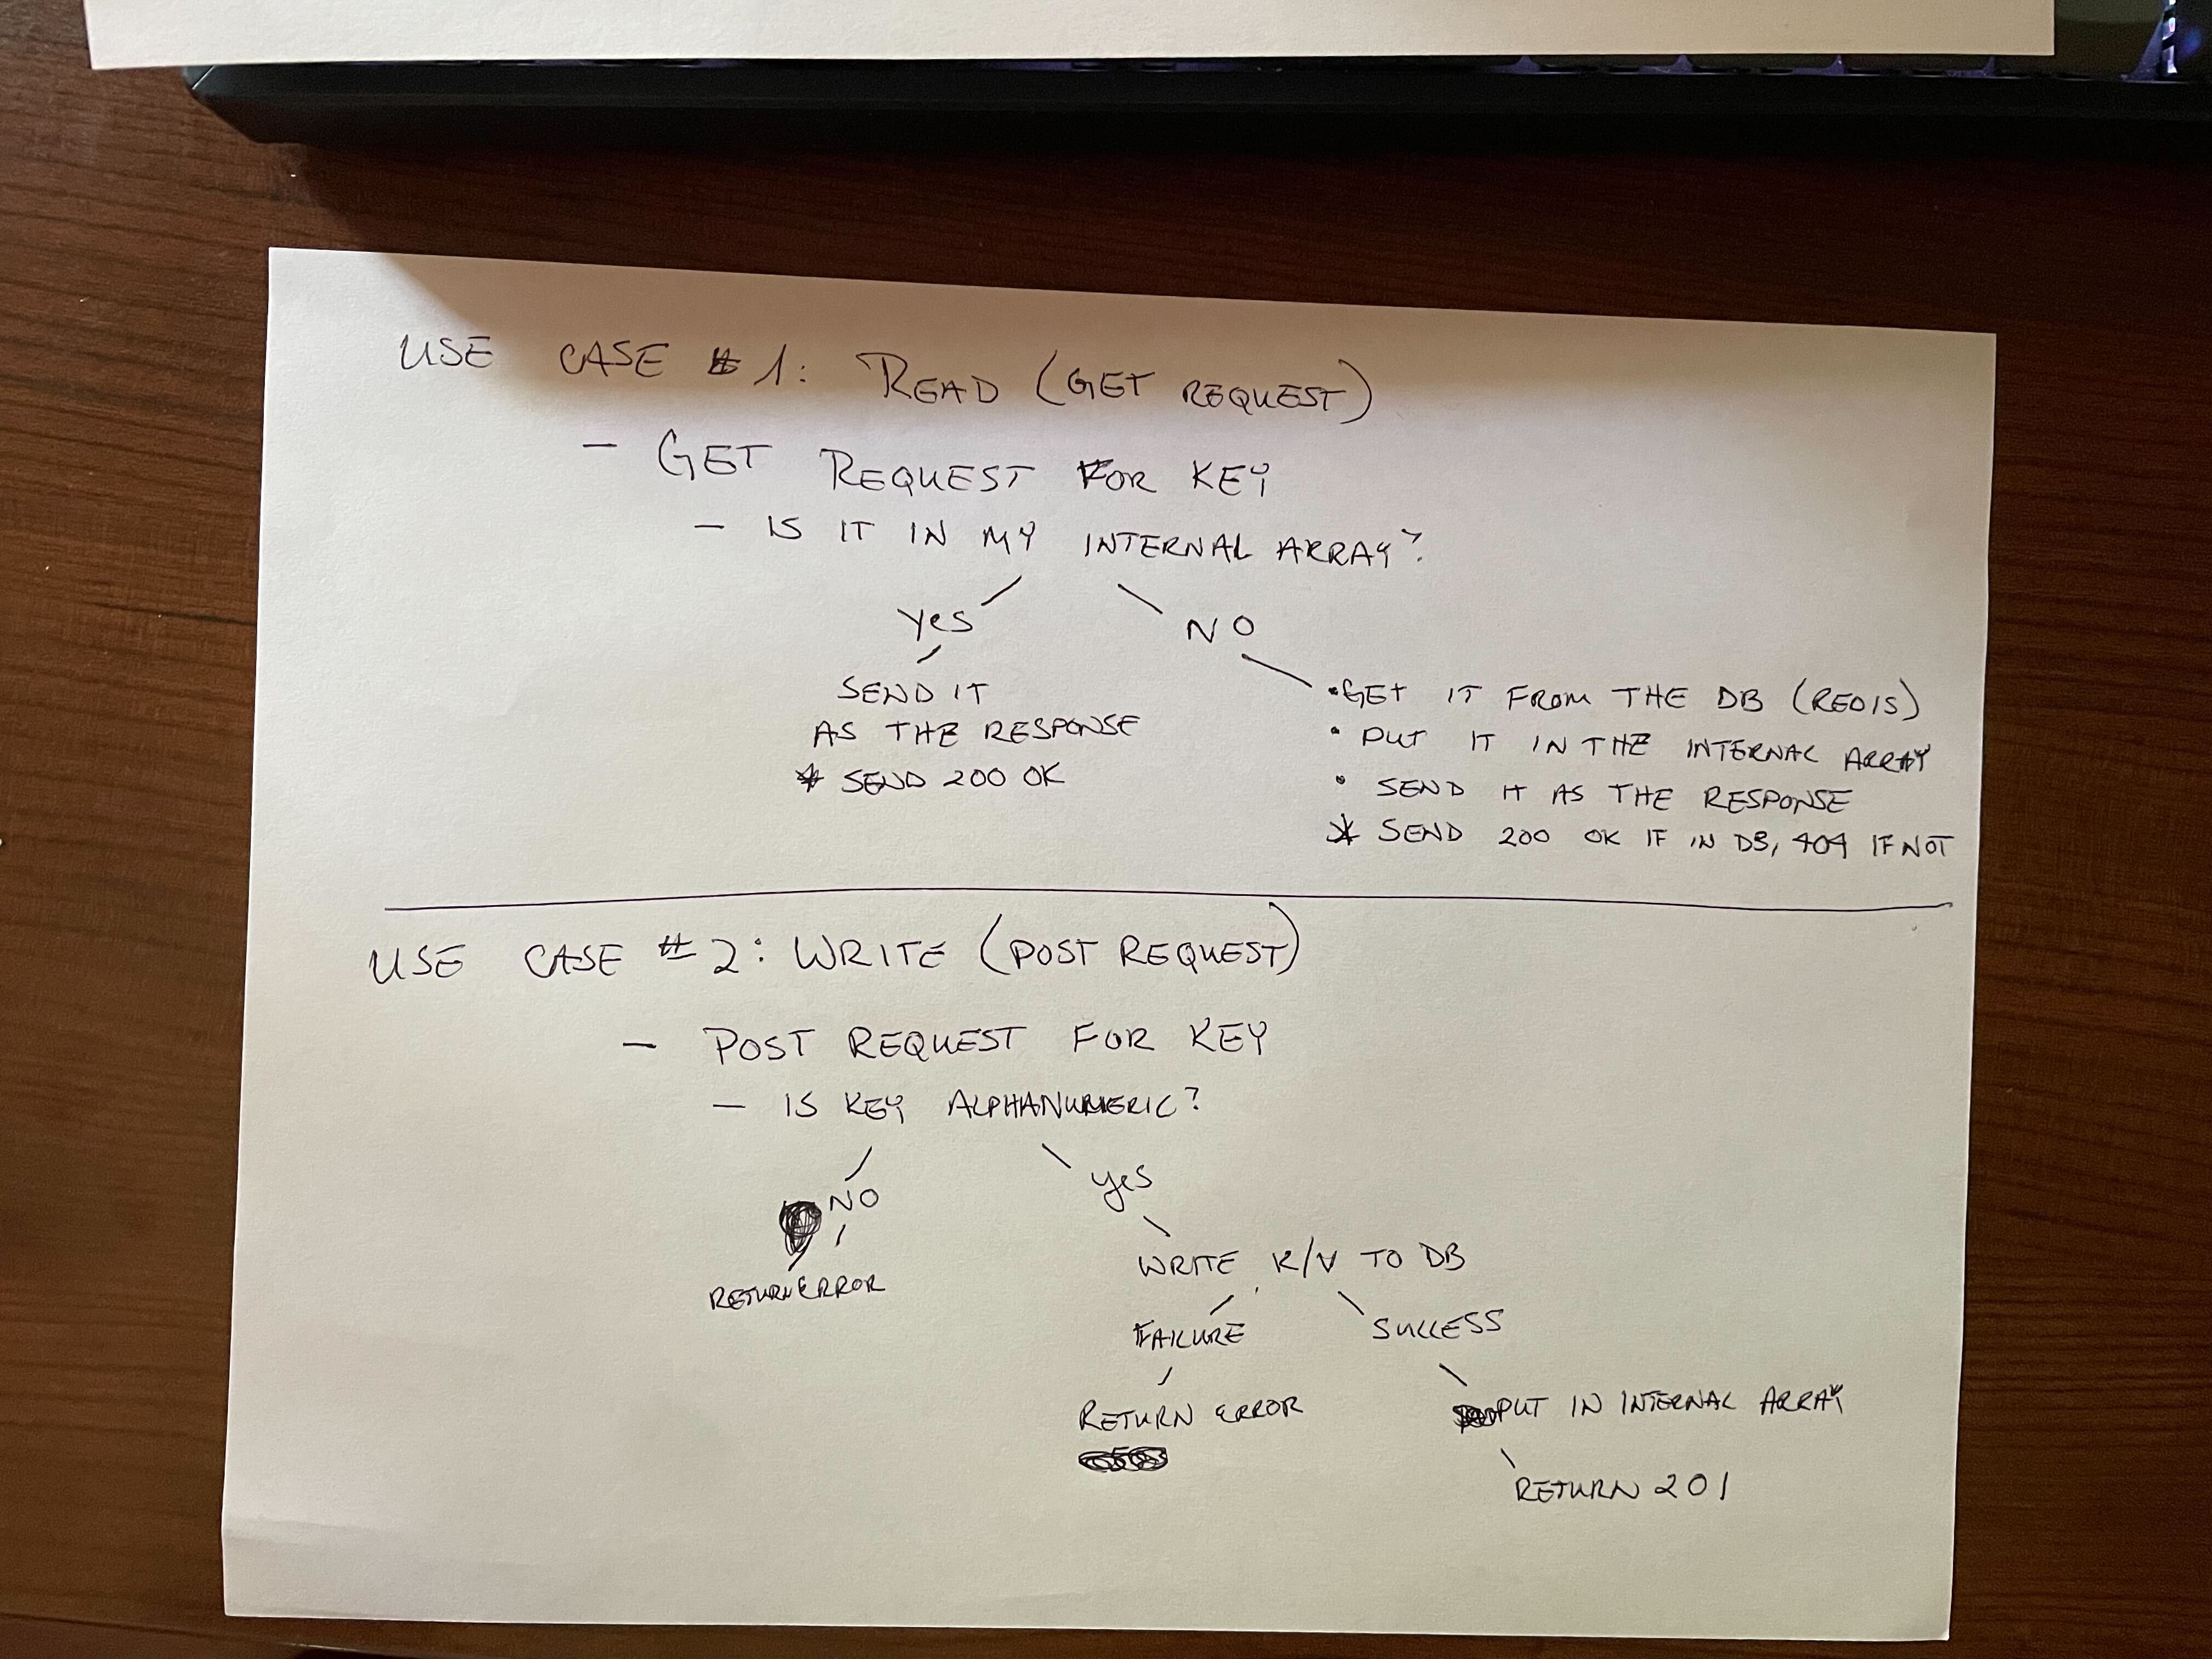 USE CASE #1: READ (GET REQUEST)
- GET REQUEST FOR KEY
- IS IT IN MY INTERNAL ARRAY?
Yes
NO
SEND IT
AS THE RESPONSE
* SEND 200 OK
• GET IT FROM THE DB (REDIS)
• PUT IT IN THE INTERNAL ARRAY
• SEND IT AS THE RESPONSE
* SEND 200 OK IF IN DB, 404 IF NOT
USE CASE #2: WRITE (POST REQUEST)
- POST REQUEST FOR KEY
- IS KEY ALPHANUMERIC?
NO
yes
RETURN ERROR
WRITE K/V TO DB
FAILURE
SUCCESS
RETURN ERROR
PUT IN INTERNAL ARRAY
RETURN 201